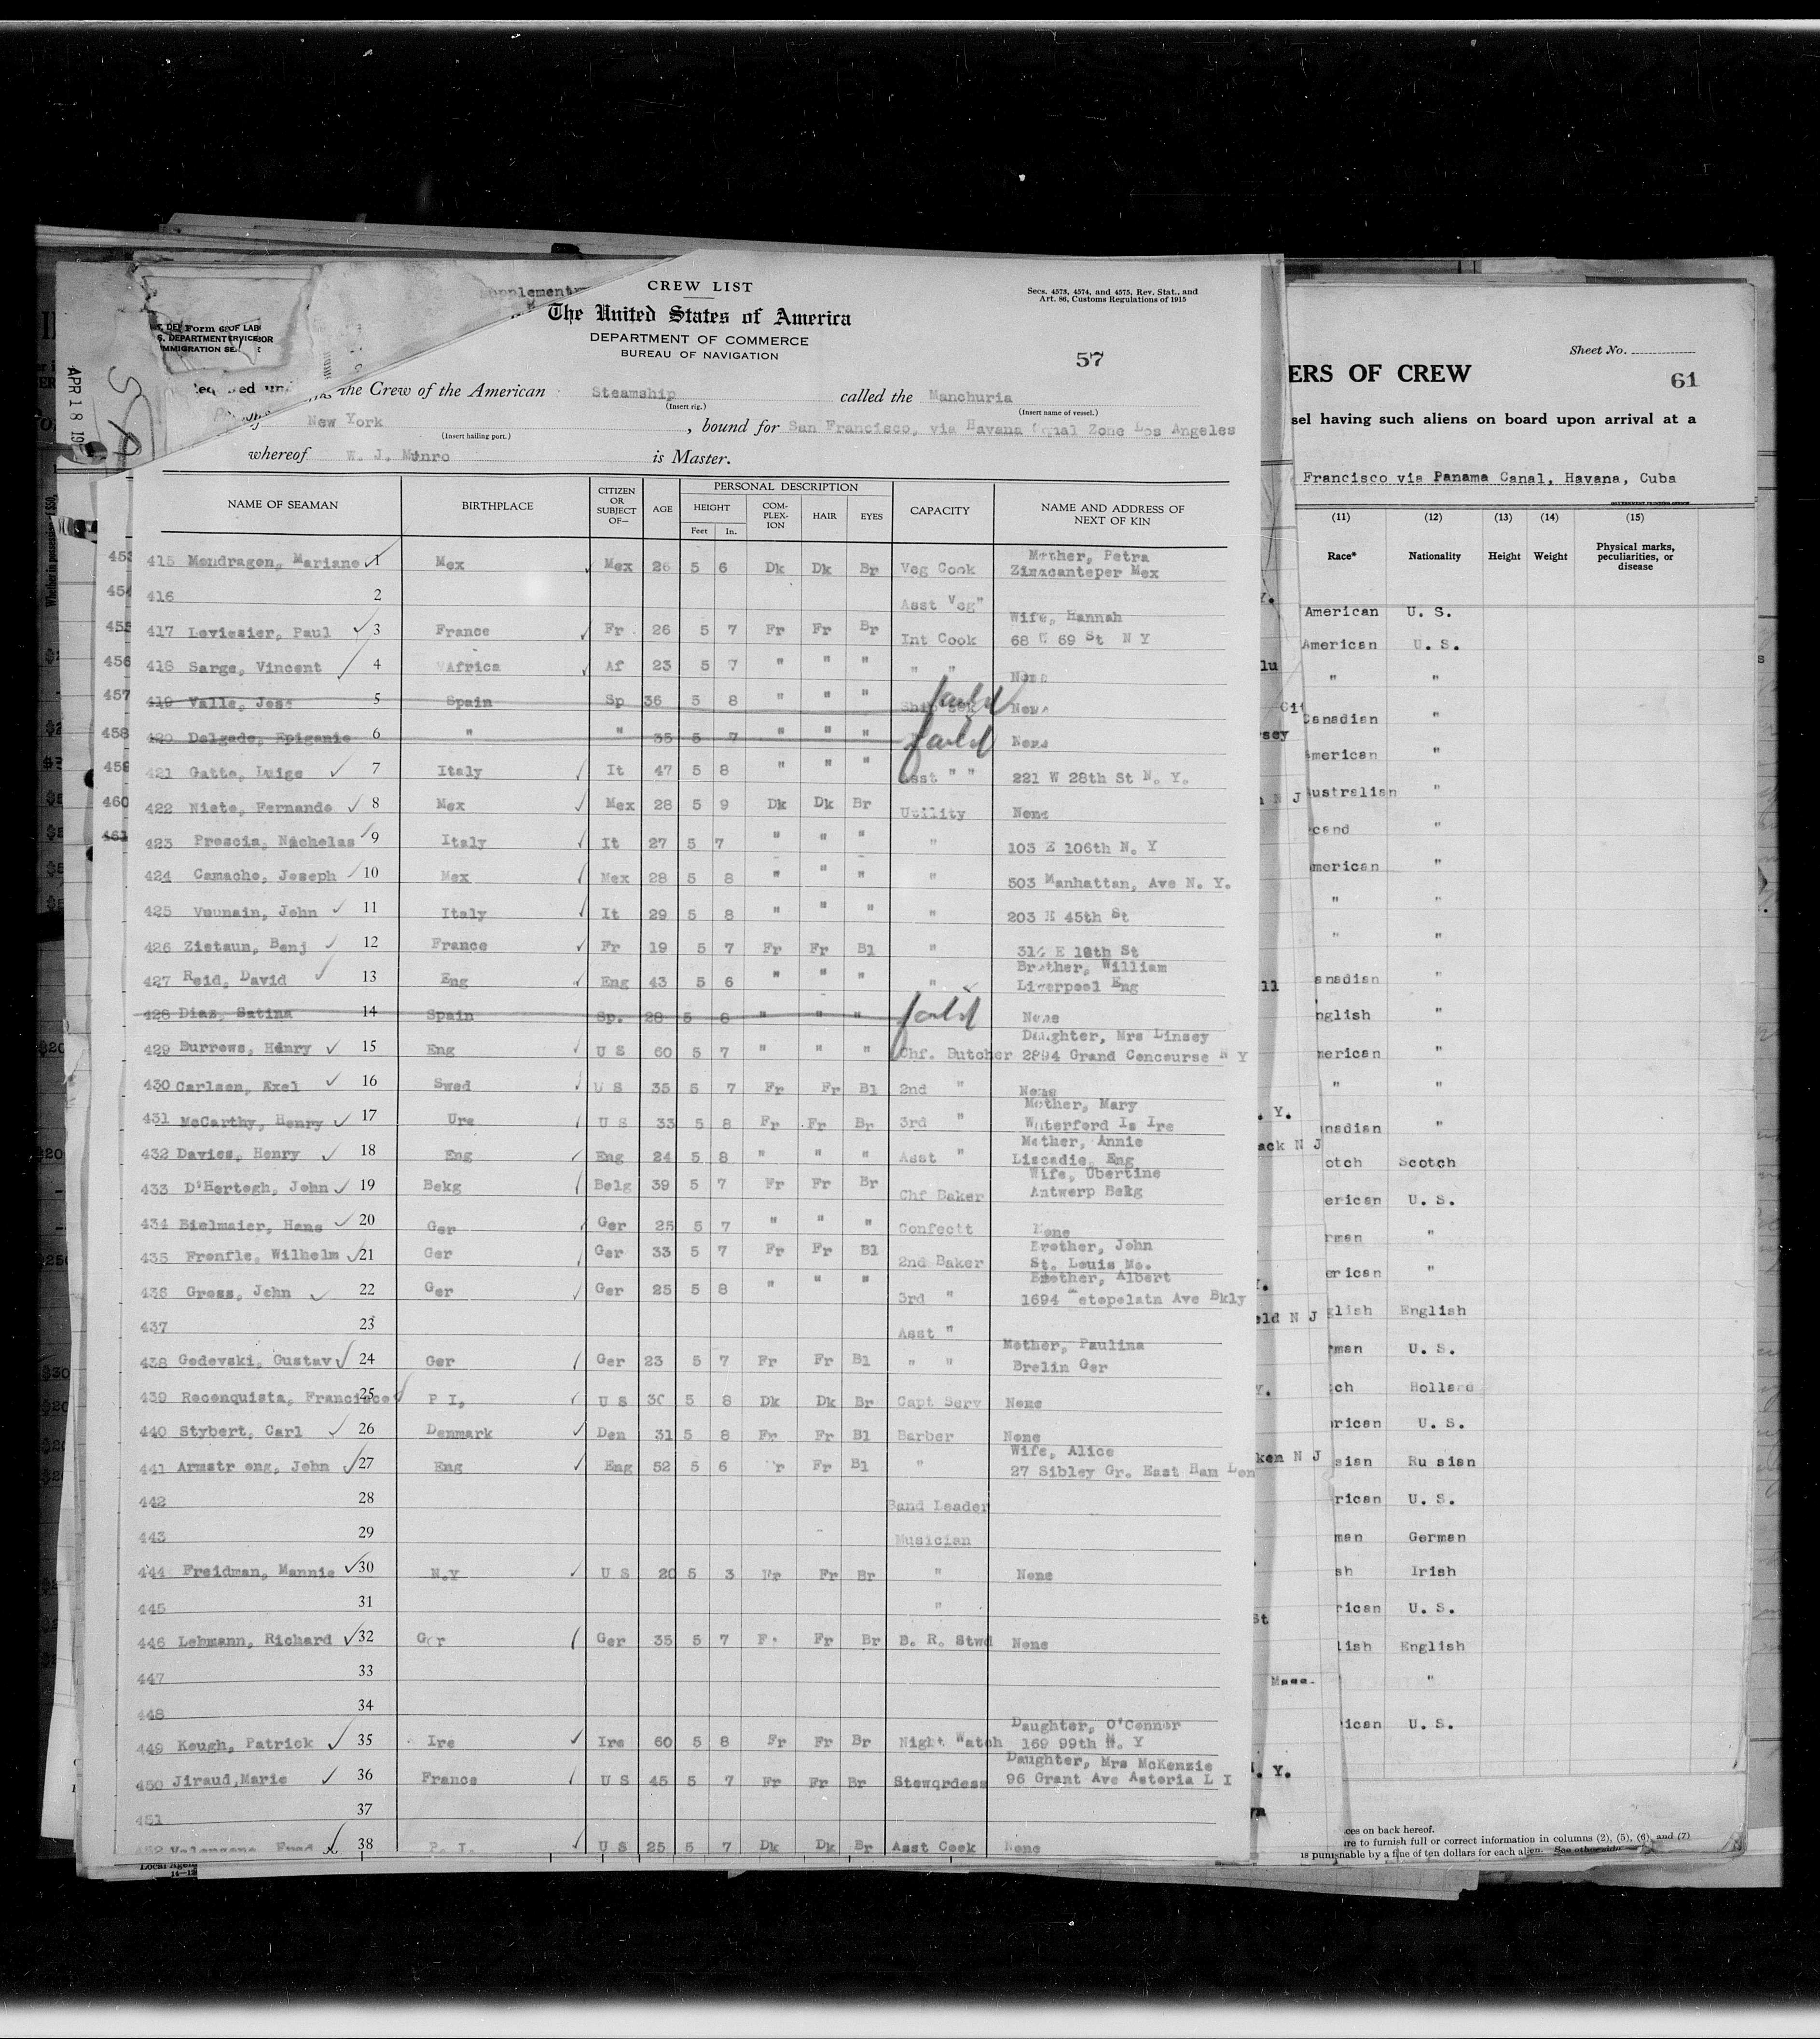 CREW LIST
The United States of America
DEPARTMENT OF COMMERCE
BUREAU OF NAVIGATION
Secs. 4573, 4574, and 4575, Rev. Stat., and
Art. 86, Customs Regulations of 1915
57
the Crew of the American Steamship called the Manchuria
(Insert rig.) (Insert name of vessel.)
New York , bound for San Francisco, via Havana Zone Los Angeles
(Insert hailing port.)
whereof W. J. Munro is Master.
APR 18
NAME OF SEAMAN BIRTHPLACE CITIZEN OR SUBJECT OF— AGE PERSONAL DESCRIPTION CAPACITY NAME AND ADDRESS OF NEXT OF KIN
HEIGHT COM-PLEX-ION HAIR EYES
Feet In.
415 Mondragon, Mariano 1 Mex Mex 26 5 6 Dk Dk Br Veg Cook Mother, Petra
Zinacanteper Mex
416 2 Asst Veg"
417 Leviesier, Paul 3 France Fr 26 5 7 Fr Fr Br Int Cook Wife, Hannah
68 W 69 St N Y
418 Sarge, Vincent 4 Africa Af 23 5 7 " " " " " None
419 Valle, Jose 5 Spain Sp 36 5 8 " " " failed None
420 Delgado, Epiganie 6 " " 35 5 7 " " " failed None
421 Gatto, Luige 7 Italy It 47 5 8 " " " Asst " " 221 W 28th St N. Y.
422 Nieto, Fernando 8 Mex Mex 28 5 9 Dk Dk Br Utility None
423 Prescia, Nicholas 9 Italy It 27 5 7 " " " " 103 E 106th N. Y
424 Camacho, Joseph 10 Mex Mex 28 5 8 " " " " 503 Manhattan, Ave N. Y.
425 Vnunain, John 11 Italy It 29 5 8 " " " " 203 E 45th St
426 Zietaun, Benj 12 France Fr 19 5 7 Fr Fr Bl " E 18th St
427 Reid, David 13 Eng Eng 43 5 6 " " " " Brother, William
Liverpool Eng
428 Dias, Satina 14 Spain Sp. 28 5 8 " " " failed None
429 Burrows, Henry 15 Eng U S 60 5 7 " " " Chf. Butcher Daughter, Mrs Linsey
2894 Grand Concourse N Y
430 Carlsen, Axel 16 Swed U S 35 5 7 Fr Fr Bl 2nd " None
431 McCarthy, Henry 17 Ure U S 33 5 8 Fr Fr Br 3rd " Mother, Mary
Waterford Is Ire
432 Davies, Henry 18 Eng Eng 24 5 8 " " " Asst " Mother, Annie
Liscadie, Eng
433 D'Hertogh, John 19 Bekg Belg 39 5 7 Fr Fr Br Chf Baker Wife, Ubertine
Antwerp Bekg
434 Bielmaier, Hans 20 Ger Ger 25 5 7 " " " Confectt None
435 Fronfle, Wilhelm 21 Ger Ger 33 5 7 Fr Fr Bl 2nd Baker Brother, John
St. Louis Mo.
436 Gross, John 22 Ger Ger 25 5 8 " " " 3rd " Brother, Albert
1694 Ave Bkly
437 23 Asst "
438 Godevski, Gustav 24 Ger Ger 23 5 7 Fr Fr Bl " " Mother, Paulina
Brelin Ger
439 Reconquista, Francisco 25 P I, U S 30 5 8 Dk Dk Br Capt Serv None
440 Stybert, Carl 26 Denmark Den 31 5 8 Fr Fr Bl Barber None
441 Armstr ong, John 27 Eng Eng 52 5 6 Fr Fr Bl " Wife, Alice
27 Sibley Gr. East Ham Lon
442 28 Band Leader
443 29 Musician
444 Freidman, Mannie 30 N.Y U S 20 5 3 Fr Fr Br " None
445 31 "
446 Lehmann, Richard 32 Ger Ger 35 5 7 Fr Br B. R. Stwd None
447 33
448 34
449 Keugh, Patrick 35 Ire Ire 60 5 8 Fr Fr Br Night Watch Daughter, O'Connor
169 99th N. Y
450 Jiraud,Marie 36 France U S 45 5 7 Fr Fr Br Stewqrdess Daughter, Mrs McKenzie
96 Grant Ave Astoria L I
451 37
452 38 P. I. U S 25 5 7 Dk Dk Br Asst Cook None
ERS OF CREW
Sheet No.
61
sel having such aliens on board upon arrival at a
Francisco via Panama Canal, Havana, Cuba
(11) (12) (13) (14) (15)
Race* Nationality Height Weight Physical marks, peculiarities, or disease
American U. S.
American U. S.
" "
Canadian "
merican "
ustralian "
"
merican "
" "
" "
anadian "
nglish "
merican "
" "
nadian "
otch Scotch
erican U. S.
rman "
erican "
glish English
rman U. S.
ch Holland
rican U. S.
sian Ru sian
rican U. S.
man German
sh Irish
rican U. S.
lish English
"
ican U. S.
ces on back hereof.
re to furnish full or correct information in columns (2), (5), (6), and (7)
is punishable by a fine of ten dollars for each alien.